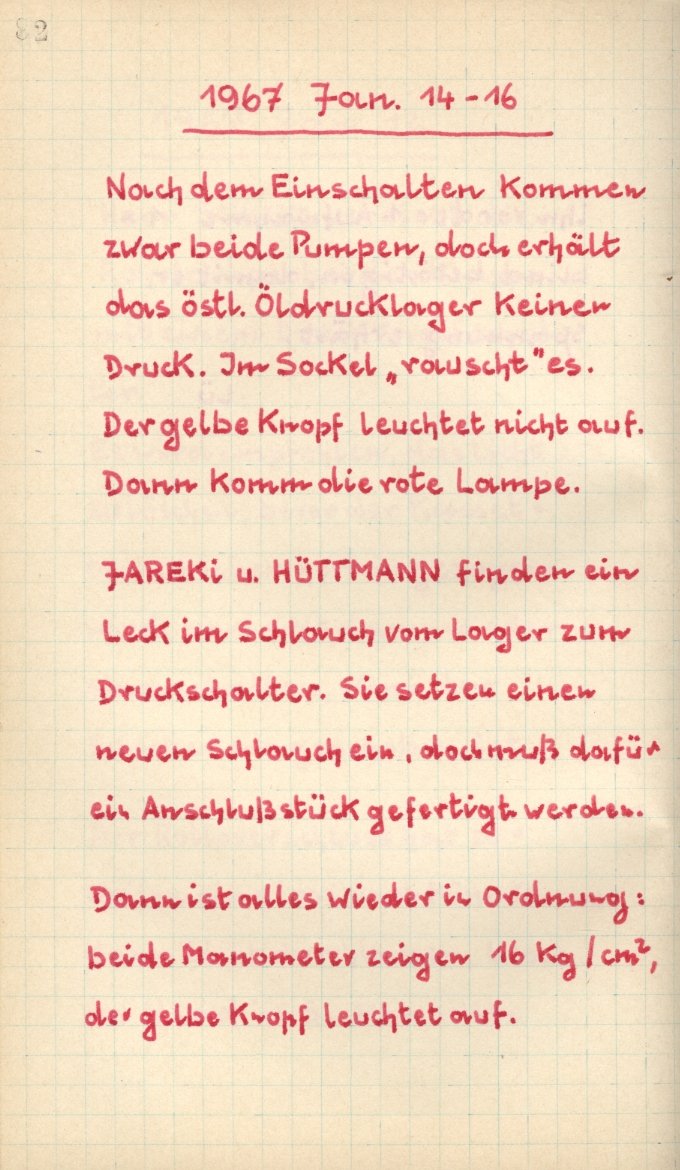 82
1967 Jan. 14-16
Nach dem Einschalten kommen
zwar beide Pumpen, doch erhält
das östl. Öldrucklager keinen
Druck. Im Sockel „rauscht" es.
Der gelbe Knopf leuchtet nicht auf.
Dann komm die rote Lampe.
JAREKi u. HÜTTMANN finden ein
Leck im Schlauch vom Lager zum
Druckschalter. Sie setzen einen
neuen Schlauch ein, doch muß dafür
ein Anschlußstück gefertigt werden.
Dann ist alles wieder in Ordnung:
beide Manometer zeigen 16 kg/cm²,
der gelbe Knopf leuchtet auf.